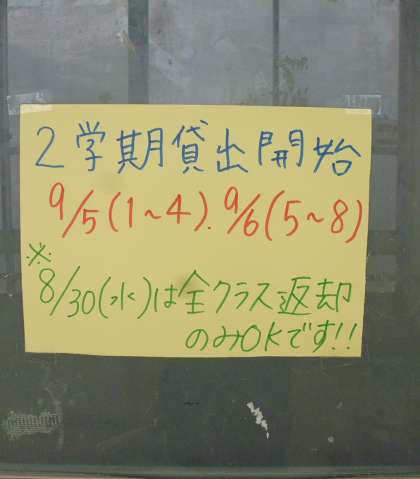 2学期貸出開始
9/5(1~4).9/6(5~8)
※
8/30(水)は全クラス返却
のみOKです!!